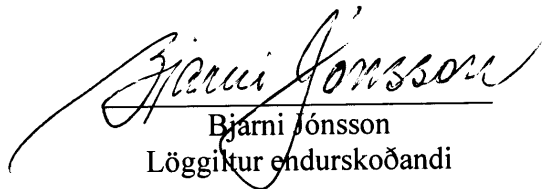 Bjarni Jónsson
Bjarni Jónsson
Löggiltur endurskoðandi